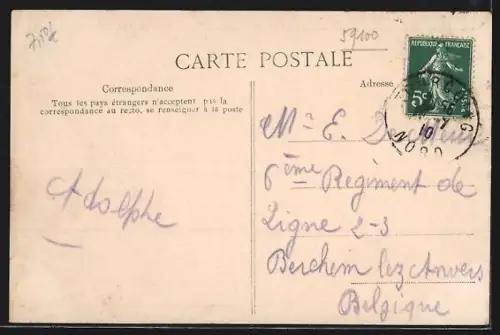 59100
CARTE POSTALE
Correspondance
Tous les pays étrangers n'acceptent pas la
correspondance au recto, se renseigner à la poste
Adresse
REPUBLIQUE FRANÇAISE
5c
10
NORD
Adolphe
Mr E.
6ème Régiment de
Ligne 2-3
Berchem lez Anvers
Belgique